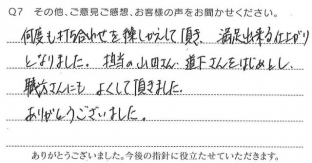 Q7 その他、ご意見ご感想、お客様の声をお聞かせください。
何度も打ち合わせを繰しかえして頂き、満足出来る仕上がり
となりました。担当の山田さん、道下さんをはじめとし
職方さんにもよくして頂きました。
ありがとうございました。
ありがとうございました。今後の指針に役立たせていただきます。